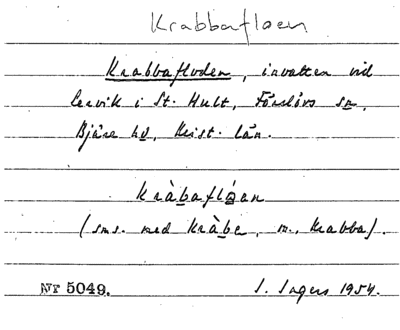 Krabbafloen
Krabbafloden, invatten vid
Lervik i St. Hult, Förslövs sn,
Bjäre hd, Krist. län.
Kràbaflóen
(sms. med Kràbe, m., Krabba).
Nr 5049. I. Ingers 1954.